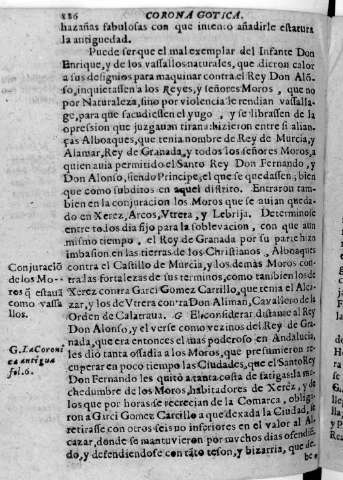 226 CORONA GOTICA.
hazañas fabulosas con que intento añadirle estatura
la antiguedad.
Puede ser que el mal exemplar del Infante Don
Enrique, y de los vassallos naturales, que dieron calor
a sus designios para maquinar contra el Rey Don Alõ-
so, inquietassen a los Reyes, y señores Moros, que no
por Naturaleza, sino por violencia le rendian vassalla-
ge, para que sacudiessen el yugo, y se librassen de la
opression que juzgauan tirana: hizieron entre si alian-
ças Alboaques, que tenia nombre de Rey de Murcia, y
Alamar, Rey de Granada, y todos los señores Moros, a
quien auia permitido el Santo Rey Don Fernando, y
Don Alonso, siendo Principe, el que se quedassen, bien
que como subditos en aquel distrito. Entraron tam-
bien en la conjuracion los Moros que se auian queda-
do en Xerez, Arcos, Vtrera, y Lebrija. Determinose
entre todos dia fijo para la soblevacion, con que aun
mismo tiempo, el Rey de Granada por su parte hizo
imbasion en las tierras de los Christianos, Alboaques
contra el Castillo de Murcia, y los demás Moros con-
tra las fortalezas de sus terminos, como tambien los de
Xerez contra Garci Gomez Carrillo, que tenia el Alca-
zar, y los de Vtrera contra Don Aliman, Cavallero de la
Orden de Calatraua. G El considerar distante al Rey
Don Alonso, y el verse como vezinos del Rey de Gra-
nada, que era entonces el mas poderoso en Andalucia,
les dió tanta ossadia a los Moros, que presumieron re-
cuperar en poco tiempo las Ciudades, que el Santo Rey
Don Fernando les quitó a tanta costa de fatigas: la mu-
chedumbre de los Moros, habitadores de Xerez, y de
los que por horas se recrecian de la Comarca, obliga-
ron a Garci Gomez Carrillo a que dexada la Ciudad, se
retirasse con otros seis no inferiores en el valor al Al-
cazar, donde se mantuvieron por muchos dias ofendiẽ-
do, y defendiendose con tãto teson, y bizarria, que de-
Conjuraciõ
de los Mo-
ros q̃ estauã
como vassa
llos.
G. La Coroni
ca antigua
fol. 6.